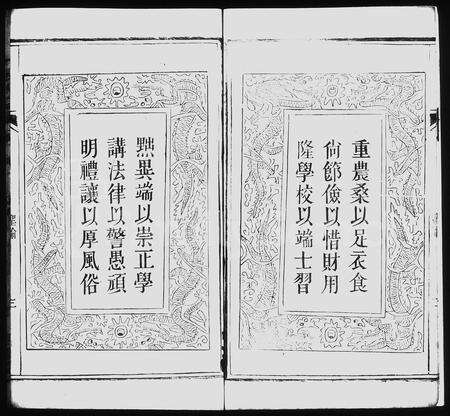 重農桑以足衣食
尙節儉以惜財用
隆學校以端士習
黜異端以崇正學
講法律以警愚頑
明禮讓以厚風俗